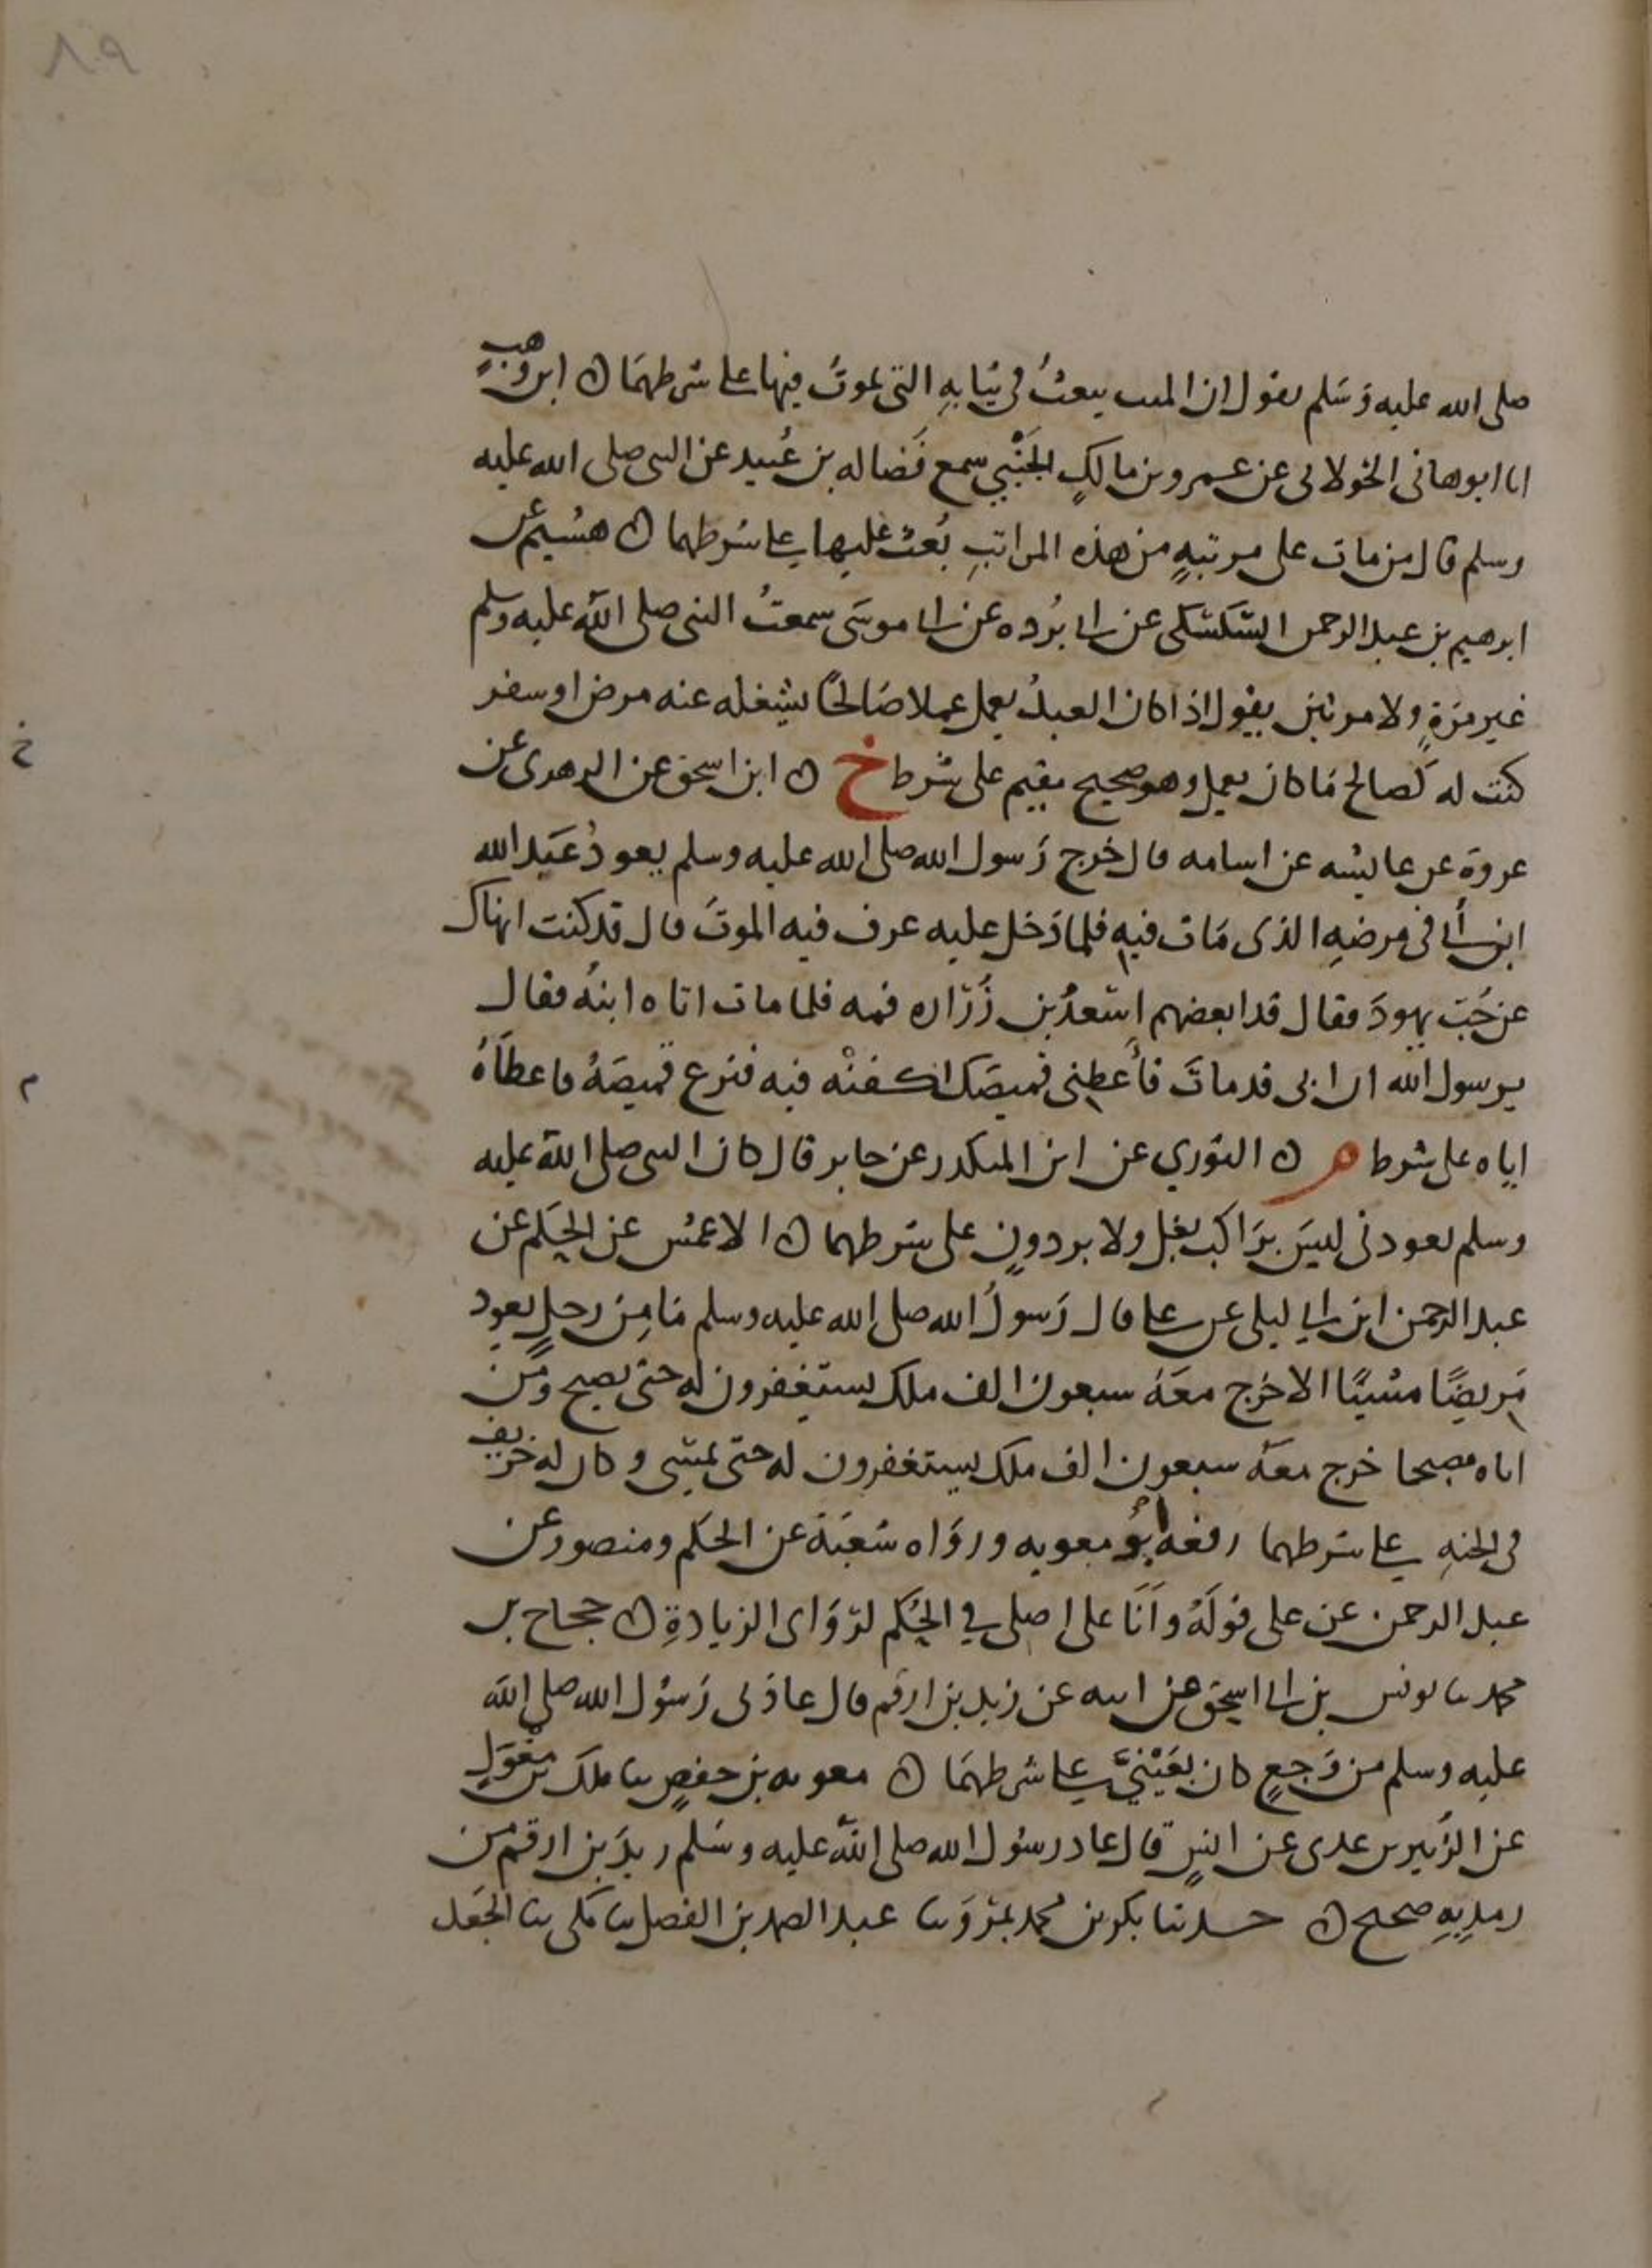 ٨٩
صلى الله عليه وَسَلم يقول ان الميت يبعثُ في ثيابهِ التي يموتُ فيها على شرطهمَا ن ابن وهبٍ
انا ابو هانى الخولانى عن عمرو بن مالكٍ الجَنْبي سمع فَضاله بن عُبيد عن النبى صلى الله عليه
وسلم قال من مات على مرتبهٍ من هذه المراتبِ بُعث عليها على شرطهما ن هشيم عن
ابرهيم بن عبد الرحمن السَّكسَكى عن ابى بُرده عن ابى موسَى سمعتُ النبى صلى اللّه عليه وسلم
غير مَرةٍ ولا مرتين يقول اذا كان العبدُ يعمل عملا صَالحًا يشغله عنه مرض او سفر
كتب له كَصالح مَا كان يعمل وهو صحيح مقيم على شرط خ ن ابن اسحق عن الزهرى عن
عروة عن عايشه عن اسامه قال خرج رَسول الله صلى الله عليه وسلم يعودُ عَبد الله
ابن أبى فى مرضهِ الذى مَات فيهِ فلما دَخل عليه عرف فيه الموتَ قال قد كنت انهاك
عن حُبّ يهودَ فقال قد ابعضهم اسْعدُ بن زُرَاره فمه فلما مات اتاه ابنُه فقال
يرسول الله ان ابى قد ماتَ فأعطِنى قميصَك اكفنْه فيه فنزع قميصَهُ فاعطَاهُ
اياه على شرط م ن الثوري عن ابن المنكدر عن جابر قال كان النبى صلى اللّه عليه
وسلم يعودنى ليسَ برَاكب بغل ولا بردونٍ على شرطهما ن الاعمش عن الحَكم عن
عبد الرحمن ابن ابي ليلى عن على قال رَسولُ الله صلى الله عليه وسلم مَا مِن رجلٍ يعود
مَريضًا ممْسيًا الا خرَج معَهُ سبعون الف ملك يستغفرون له حتى يصبح ومَن
اتاه مصبحا خرج معَه سبعون الف ملك يستغفرون له حتى يمسى وكان له خريف
فى الجنهِ على شرطهما رفعه ابُو معويه وروَاه شعبَة عن الحكم ومنصور عن
عبد الرحمن عن على قولَهُ وأنَا على اصلى في الحُكم لرَوَاى الزيادةِ ن حجاج بن
محمد ثنا يونس بن ابى اسحق عن ابيه عن زيد بن ارقم قال عادَنى رَسُول الله صلى اللّه
عليه وسلم من وَجعٍ كان بعَيْنيَّ على شرطهمَا ن معويه بن حفصٍ ثنا ملك بن مغْوَلٍ
عن الزُبير بن عدى عن انسٍ قال عاد رسُول الله صلى اللّه عليه وسَلم زيدَ بن ارقم من
رمدٍ بهِ صحيح ن حدثنا بكر بن محمد بمَروَ ثنا عبد الصمد بن الفضل ثنا مَكى ثنا الجَعد
خ
م